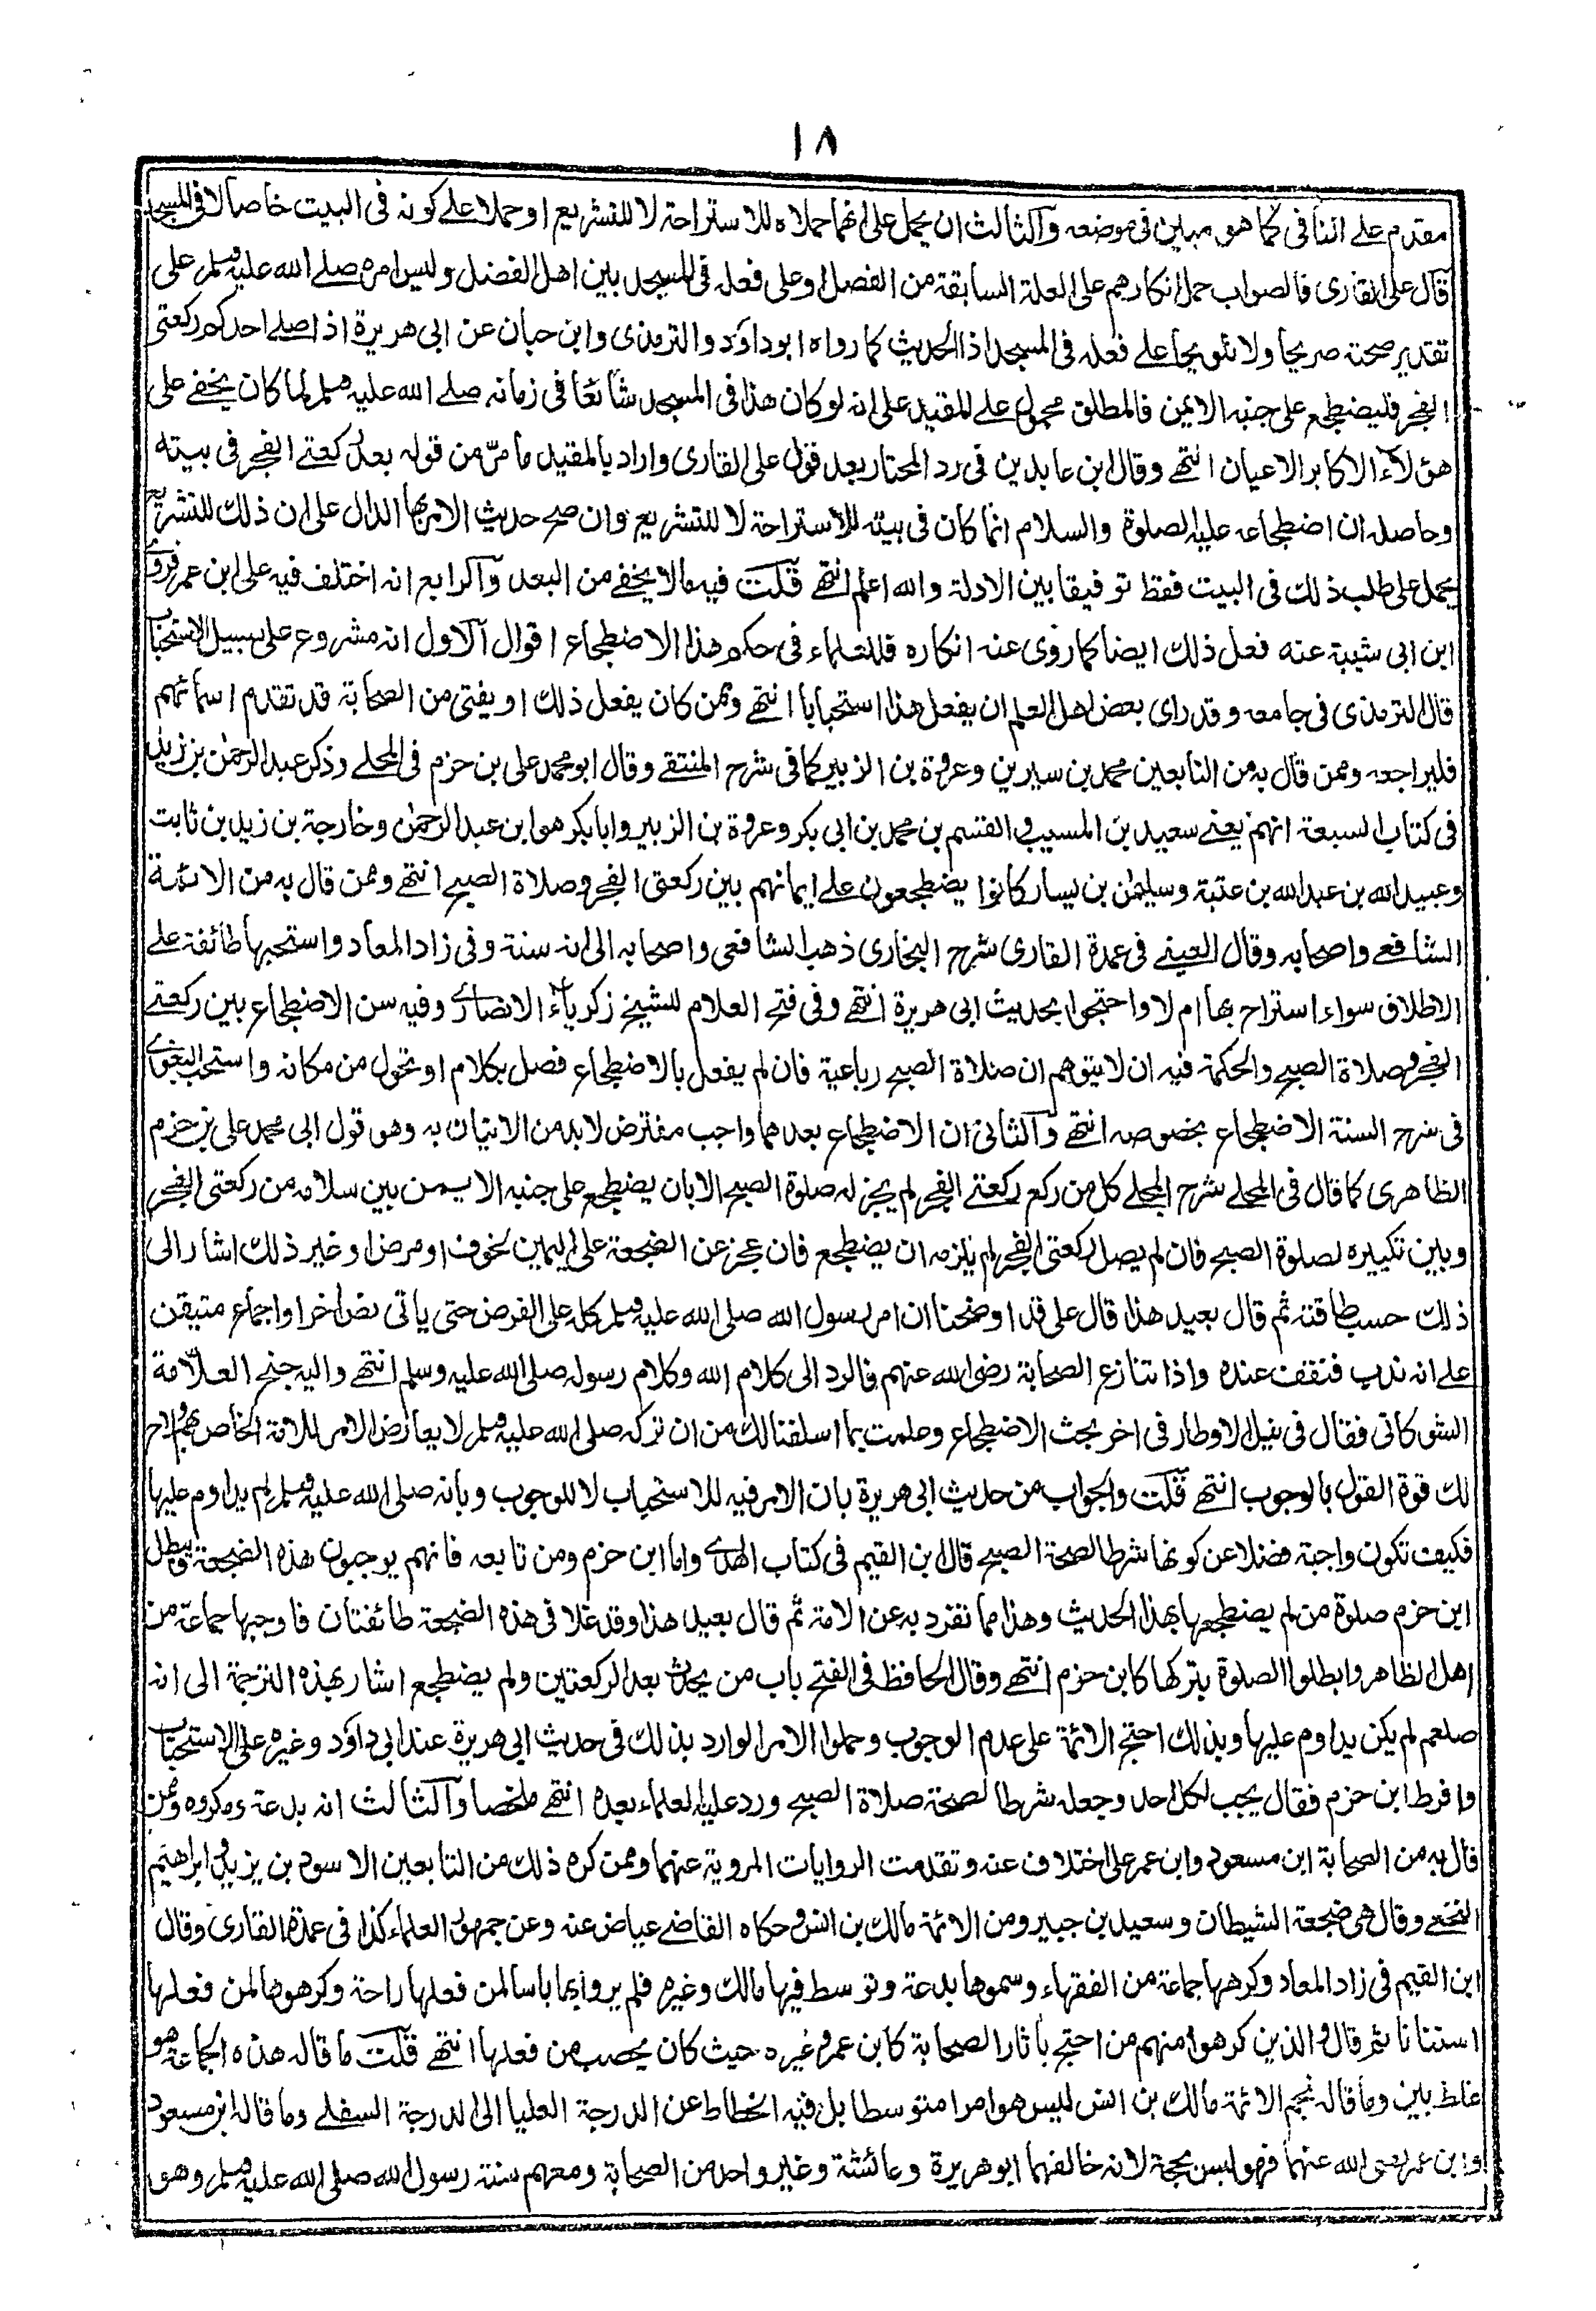 ١٨
مقدم على النافى كما هو مبين فى موضعه والثالث ان يحمل على انهما حملاه للاستراحة لا للتشريع او حملا على كونه فى البيت خاصا لا فى المسجد
قال على القارى فالصواب حمل انكارهم على العلة السابقة من الفصل او على فعله فى المسجد بين اهل الفضل وليس امره صلے الله عليه وسلم على
تقدير صحته صريحا ولا تلويحا على فعله فى المسجد اذ الحديث كما رواه ابو داود والترمذى وابن حبان عن ابى هريرة اذا صلے احدكم ركعتى
الفجر فليضطجع على جنبه الايمن فالمطلق محمول على المقيد على انه لو كان هذا فى المسجد شائعا فى زمانه صلے الله عليه وسلم لما كان يخفے على
هؤلاء الاكابر الاعيان انتهے وقال ابن عابدين فى رد المحتار بعد قول على القارى واراد بالمقيد ما مرّ من قوله بعد ركعتے الفجر فى بيته
وحاصله ان اضطجاعه عليه الصلوة والسلام انما كان فى بيته للاستراحة لا للتشريع وان صح حديث الامر بها الدال على ان ذلك للتشريع
يحمل على طلب ذلك فى البيت فقط توفيقا بين الادلة والله اعلم انتهے قلت فيه ما لا يخفے من البعد والرابع انه اختلف فيه على ابن عمر فروى
ابن ابى شيبة عنه فعل ذلك ايضا كما روى عنه انكاره فللعلماء فى حكم هذا الاضطجاع اقوال الاول انه مشروع على سبيل الاستحباب
قال الترمذى فى جامعه وقد راى بعض اهل العلم ان يفعل هذا استحبابا انتهے وممن كان يفعل ذلك او يفتى من الصحابة قد تقدم اسمائهم
فليراجعه وممن قال به من التابعين محمد بن سيرين وعروة بن الزبير كما فى شرح المنتقے وقال ابو محمد على بن حزم فى المحلے وذكر عبد الرحمٰن بن زيد
فى كتاب السبعة انهم يعنے سعيد بن المسيب و القسم بن محمد بن ابى بكر وعروة بن الزبير وابا بكر هو ابن عبد الرحمٰن وخارجة بن زيد بن ثابت
وعبيد الله بن عبد الله بن عتبة وسليمٰن بن يسار كانوا يضطجعون على ايمانهم بين ركعتى الفجر وصلاة الصبح انتهے وممن قال به من الائمة
الشافعے واصحابه وقال العينے فى عمدة القارى شرح البخارى ذهب الشافعى واصحابه الى انه سنة وفى زاد المعاد واستحبها طائفة على
الاطلاق سواء استراح بها ام لا واحتجوا بحديث ابى هريرة انتهے وفى فتح العلام للشيخ زكرياء الانصارے وفيه سن الاضطجاع بين ركعتے
الفجر وصلاة الصبح والحكمة فيه ان لا يتوهم ان صلاة الصبح رباعية فان لم يفعل بالاضطجاع فصل بكلام او تحول من مكانه واستحب البغوے
فى شرح السنة الاضطجاع بخصوصه انتهے والثانى ان الاضطجاع بعدهما واجب مفترض لا بد من الاتيان به وهو قول ابى محمد على بن حزم
الظاهرى كما قال فى المحلے شرح المجلے كل من ركع ركعتے الفجر لم يجز له صلوة الصبح الا بان يضطجع على جنبه الايمن بين سلامه من ركعتى الفجر
وبين تكبيره لصلوة الصبح فان لم يصل ركعتى الفجر لم يلزمه ان يضطجع فان عجز عن الضجعة على اليمين لخوف او مرض او غير ذلك اشار الى
ذلك حسب طاقته ثم قال بعيد هذا قال على قد اوضحنا ان امر رسول الله صلى الله عليه وسلم كله على الفرض حتى ياتى نص اخر او اجماع متيقن
على انه ندب فنقف عنده واذا تنازع الصحابة رضى الله عنهم فالرد الى كلام الله وكلام رسوله صلى الله عليه وسلم انتهے واليه جنح العلّامة
الشوكانى فقال فى نيل الاوطار فى اخر بحث الاضطجاع وعلمت بما اسلفنا لك من ان تركه صلى الله عليه وسلم لا يعارض الامر للامة الخاص بهم ولاح
لك قوة القول بالوجوب انتهے قلت والجواب من حديث ابى هريرة بان الامر فيه للاستحباب لا للوجوب وبانه صلى الله عليه وسلم لم يداوم عليها
فكيف تكون واجبة فضلا عن كونها شرطا لصحة الصبح قال ابن القيم فى كتاب الهدے واما ابن حزم ومن تابعه فانهم يوجبون هذه الضجعة ويبطل
ابن حزم صلوة من لم يضطجعها بهذا الحديث وهذا مما تفرد به عن الامة ثم قال بعيد هذا وقد غلا فى هذه الضجعة طائفتان فاوجبها جماعة من
اهل الظاهر وابطلوا الصلوة بتركها كابن حزم انتهے وقال الحافظ فى الفتح باب من يحدث بعد الركعتين ولم يضطجع اشار بهذه الترجمة الى انه
صلعم لم يكن يداوم عليها وبذلك احتج الائمة على عدم الوجوب وحملوا الامر الوارد بذلك فى حديث ابى هريرة عند ابى داود وغيره على الاستحباب
وافرط ابن حزم فقال يجب لكل احد وجعله شرطا لصحة صلاة الصبح ورد عليه العلماء بعده انتهے ملخصا والثالث انه بدعة ومكروه وممن
قال به من الصحابة ابن مسعود وابن عمر على اختلاف عنه وتقدمت الروايات المروية عنهما وممن كره ذلك من التابعين الاسود بن يزيد وابراهيم
النخعے وقال هى ضجعة الشيطان وسعيد بن جبير ومن الائمة مالك بن انس وحكاه القاضے عياض عنه وعن جمهور العلماء كذا فى عمدة القارى وقال
ابن القيم فى زاد المعاد وكرهها جماعة من الفقهاء وسموها بدعة وتوسط فيها مالك وغيره فلم يروا بها باسا لمن فعلها راحة وكرهوها لمن فعلها
استنانا ثم قال والذين كرهوا منهم من احتج باثار الصحابة كابن عمر وغيره حيث كان يحصب من فعلها انتهے قلت ما قاله هذه الجماعة هو
غلط بين وما قاله نجم الائمة مالك بن انس لليس هو امرا متوسطا بل فيه انحطاط عن الدرجة العليا الى الدرجة السفلے وما قاله ابن مسعود
وابن عمر رضى الله عنهما فهو ليس بحجة لانه خالفهما ابو هريرة وعائشة وغير واحد من الصحابة ومعهم سنة رسول الله صلى الله عليه وسلم وهو